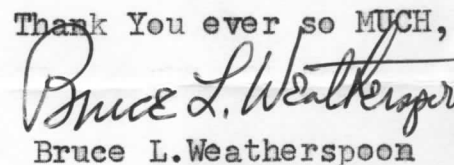 Thank You ever so MUCH,
Bruce L. Weatherspoon
Bruce L.Weatherspoon